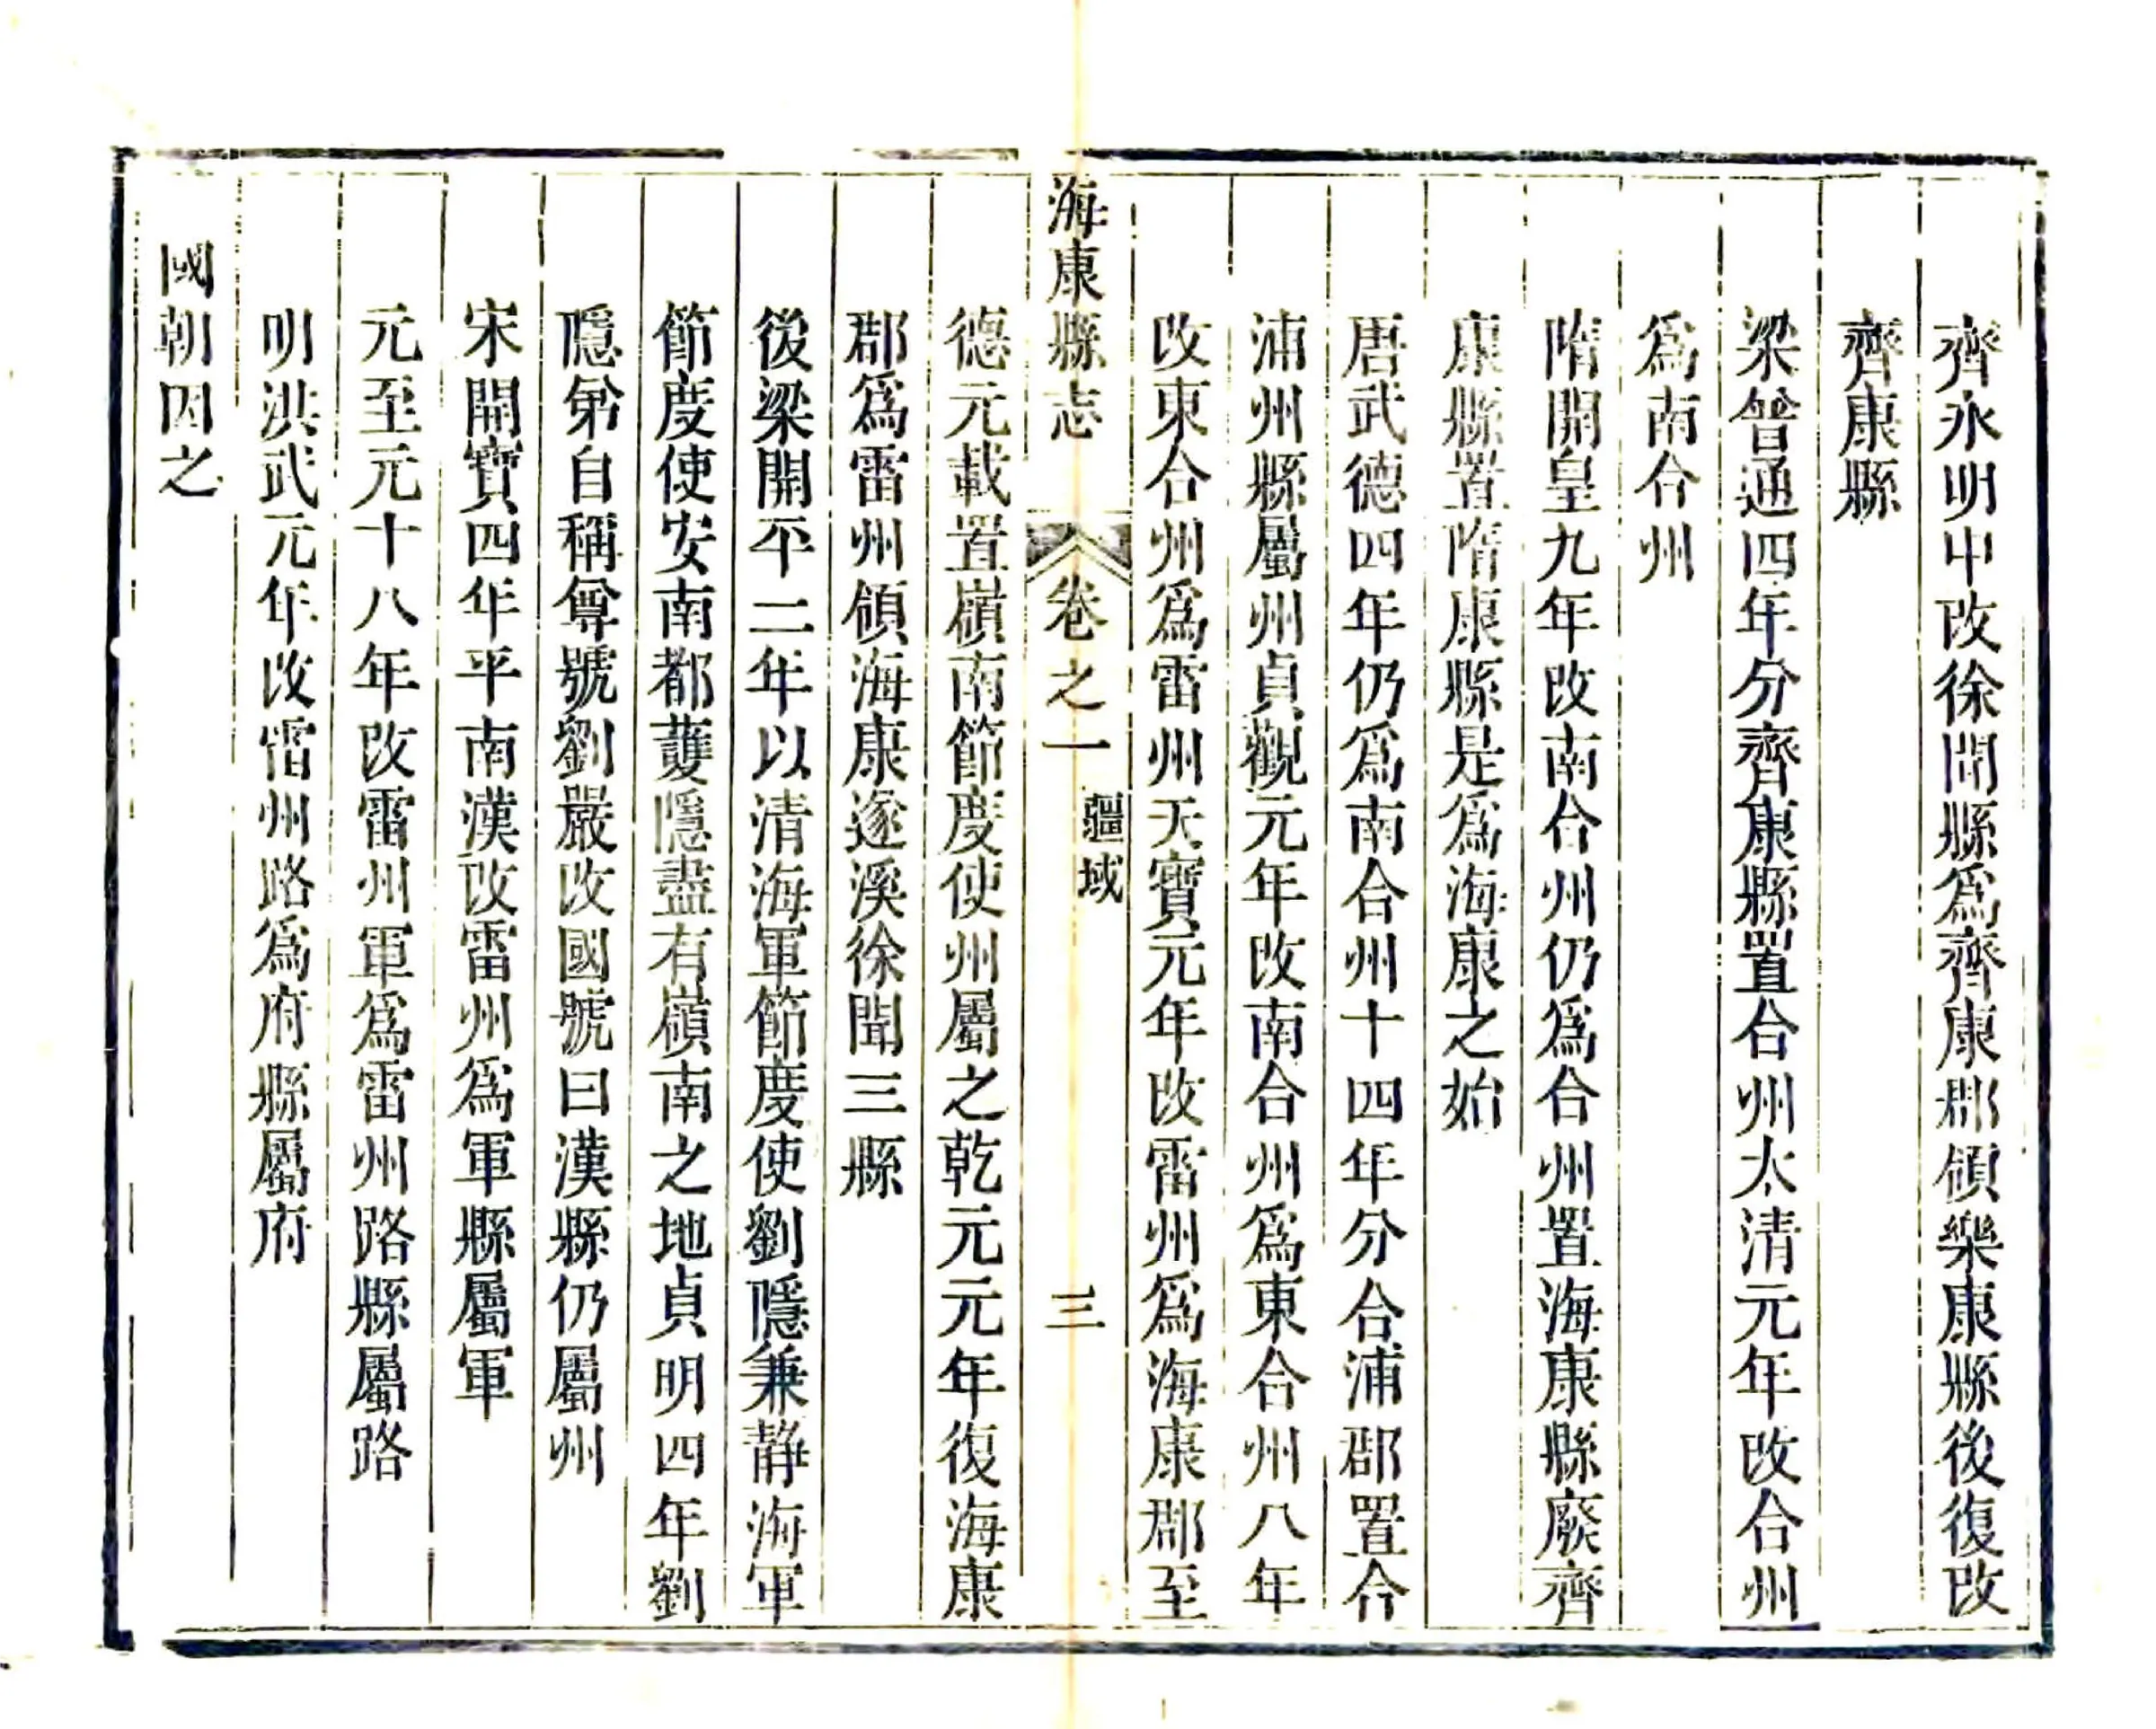 齊永明中改徐聞縣為齊康郡領樂康縣後復改
齊康縣
梁普通四年分齊康縣置合州太清元年改合州
爲南合州
隋開皇九年改南合州仍爲合州置海康縣廢齊
康縣置隋康縣是爲海康之始
唐武德四年仍爲南合州十四年分合浦郡置合
浦州縣屬州貞觀元年改南合州爲東合州八年
改東合州爲雷州天寶元年改雷州爲海康郡至
海康縣志
卷之一
疆域
三
德元載置嶺南節度使州屬之乾元元年復海康
郡爲雷州領海康遂溪徐聞三縣
後梁開平二年以清海軍節度使劉隱兼静海軍
節度使安南都護隱盡有嶺南之地貞明四年劉
隱弟自稱尊號劉嚴改國號曰漢縣仍屬州
宋開寶四年平南漢改雷州爲軍縣屬軍
元至元十八年改雷州軍爲雷州路縣屬路
明洪武元年改雷州路爲府縣屬府
國朝因之